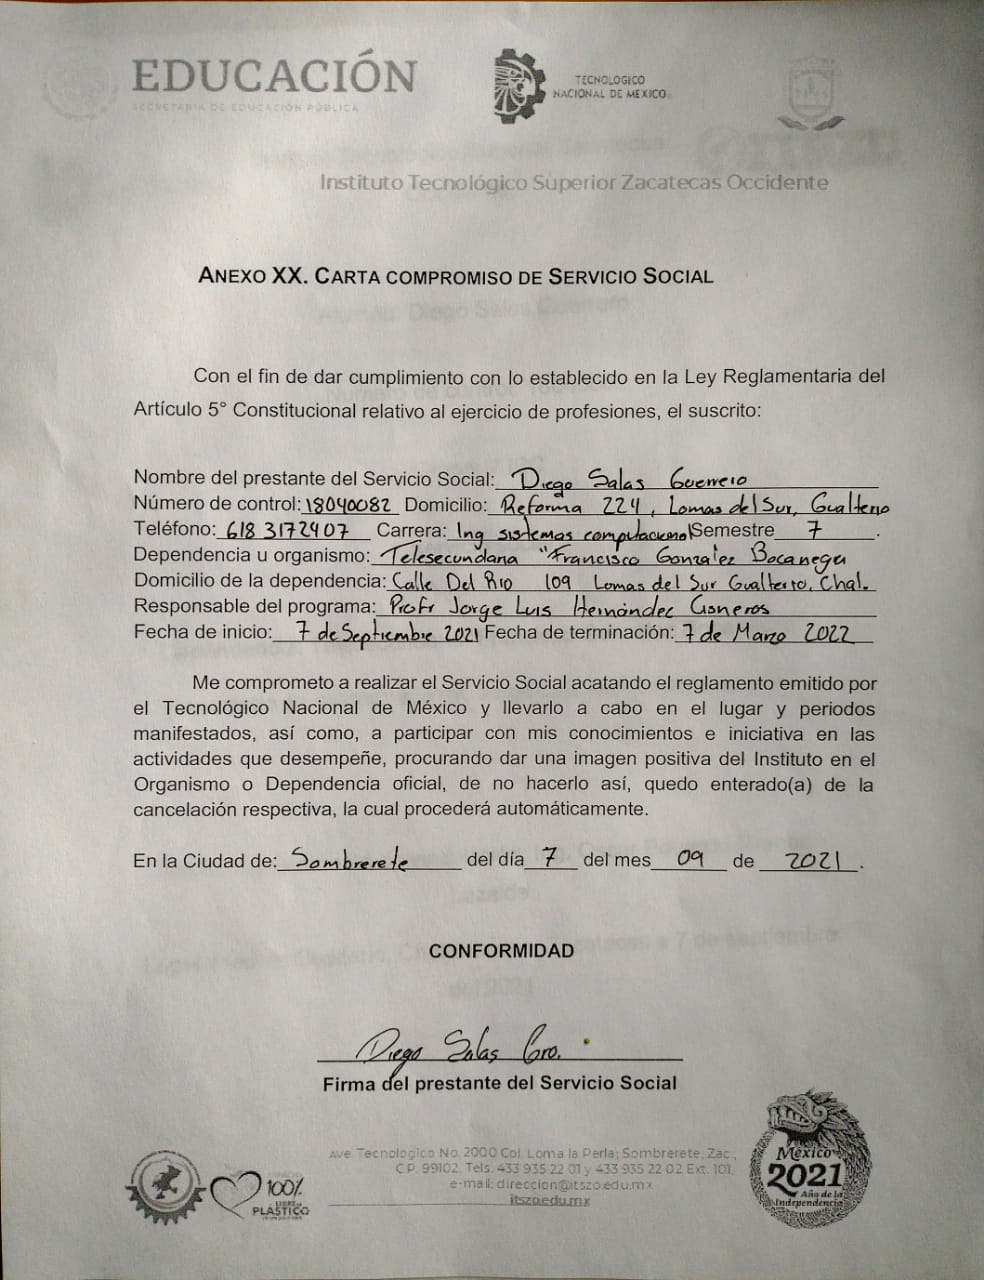 EDUCACIÓN
SECRETARÍA DE EDUCACIÓN PÚBLICA
TECNOLÓGICO
NACIONAL DE MÉXICO
Instituto Tecnológico Superior Zacatecas Occidente
ANEXO XX. CARTA COMPROMISO DE SERVICIO SOCIAL
Con el fin de dar cumplimiento con lo establecido en la Ley Reglamentaria del
Artículo 5° Constitucional relativo al ejercicio de profesiones, el suscrito:
Nombre del prestante del Servicio Social: Diego Salas Guerrero
Número de control: 18040082 Domicilio: Reforma 224, Lomas del Sur, Gualterio
Teléfono: 618 3172407 Carrera: Ing sistemas computacional Semestre 7.
Dependencia u organismo: Telesecundaria "Francisco González Bocanegra
Domicilio de la dependencia: Calle Del Rio 109 Lomas del Sur Gualterio, Chal.
Responsable del programa: Profr Jorge Luis Hernández Cisneros
Fecha de inicio: 7 de Septiembre 2021 Fecha de terminación: 7 de Marzo 2022
Me comprometo a realizar el Servicio Social acatando el reglamento emitido por
el Tecnológico Nacional de México y llevarlo a cabo en el lugar y periodos
manifestados, así como, a participar con mis conocimientos e iniciativa en las
actividades que desempeñe, procurando dar una imagen positiva del Instituto en el
Organismo o Dependencia oficial, de no hacerlo así, quedo enterado(a) de la
cancelación respectiva, la cual procederá automáticamente.
En la Ciudad de: Sombrerete del día 7 del mes 09 de 2021.
CONFORMIDAD
Diego Salas Gro.
Firma del prestante del Servicio Social
Ave. Tecnológico No. 2000 Col. Loma la Perla; Sombrerete, Zac.,
C.P. 99102. Tels. 433 935 22 01 y 433 935 22 02 Ext. 101,
e-mail: direccion@itszo.edu.mx
itszo.edu.mx
100%
LIBRE DE
PLÁSTICO
México
2021
Año de la
Independencia